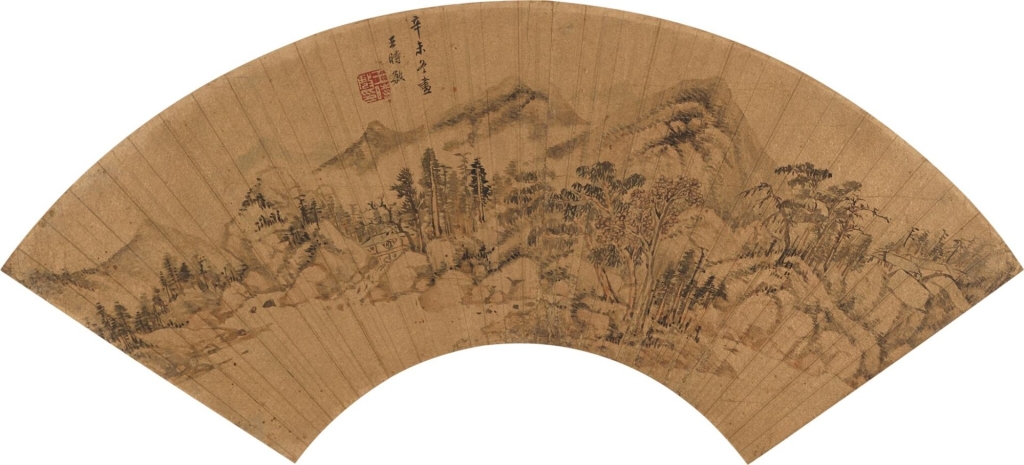 辛未冬畫
王時敏